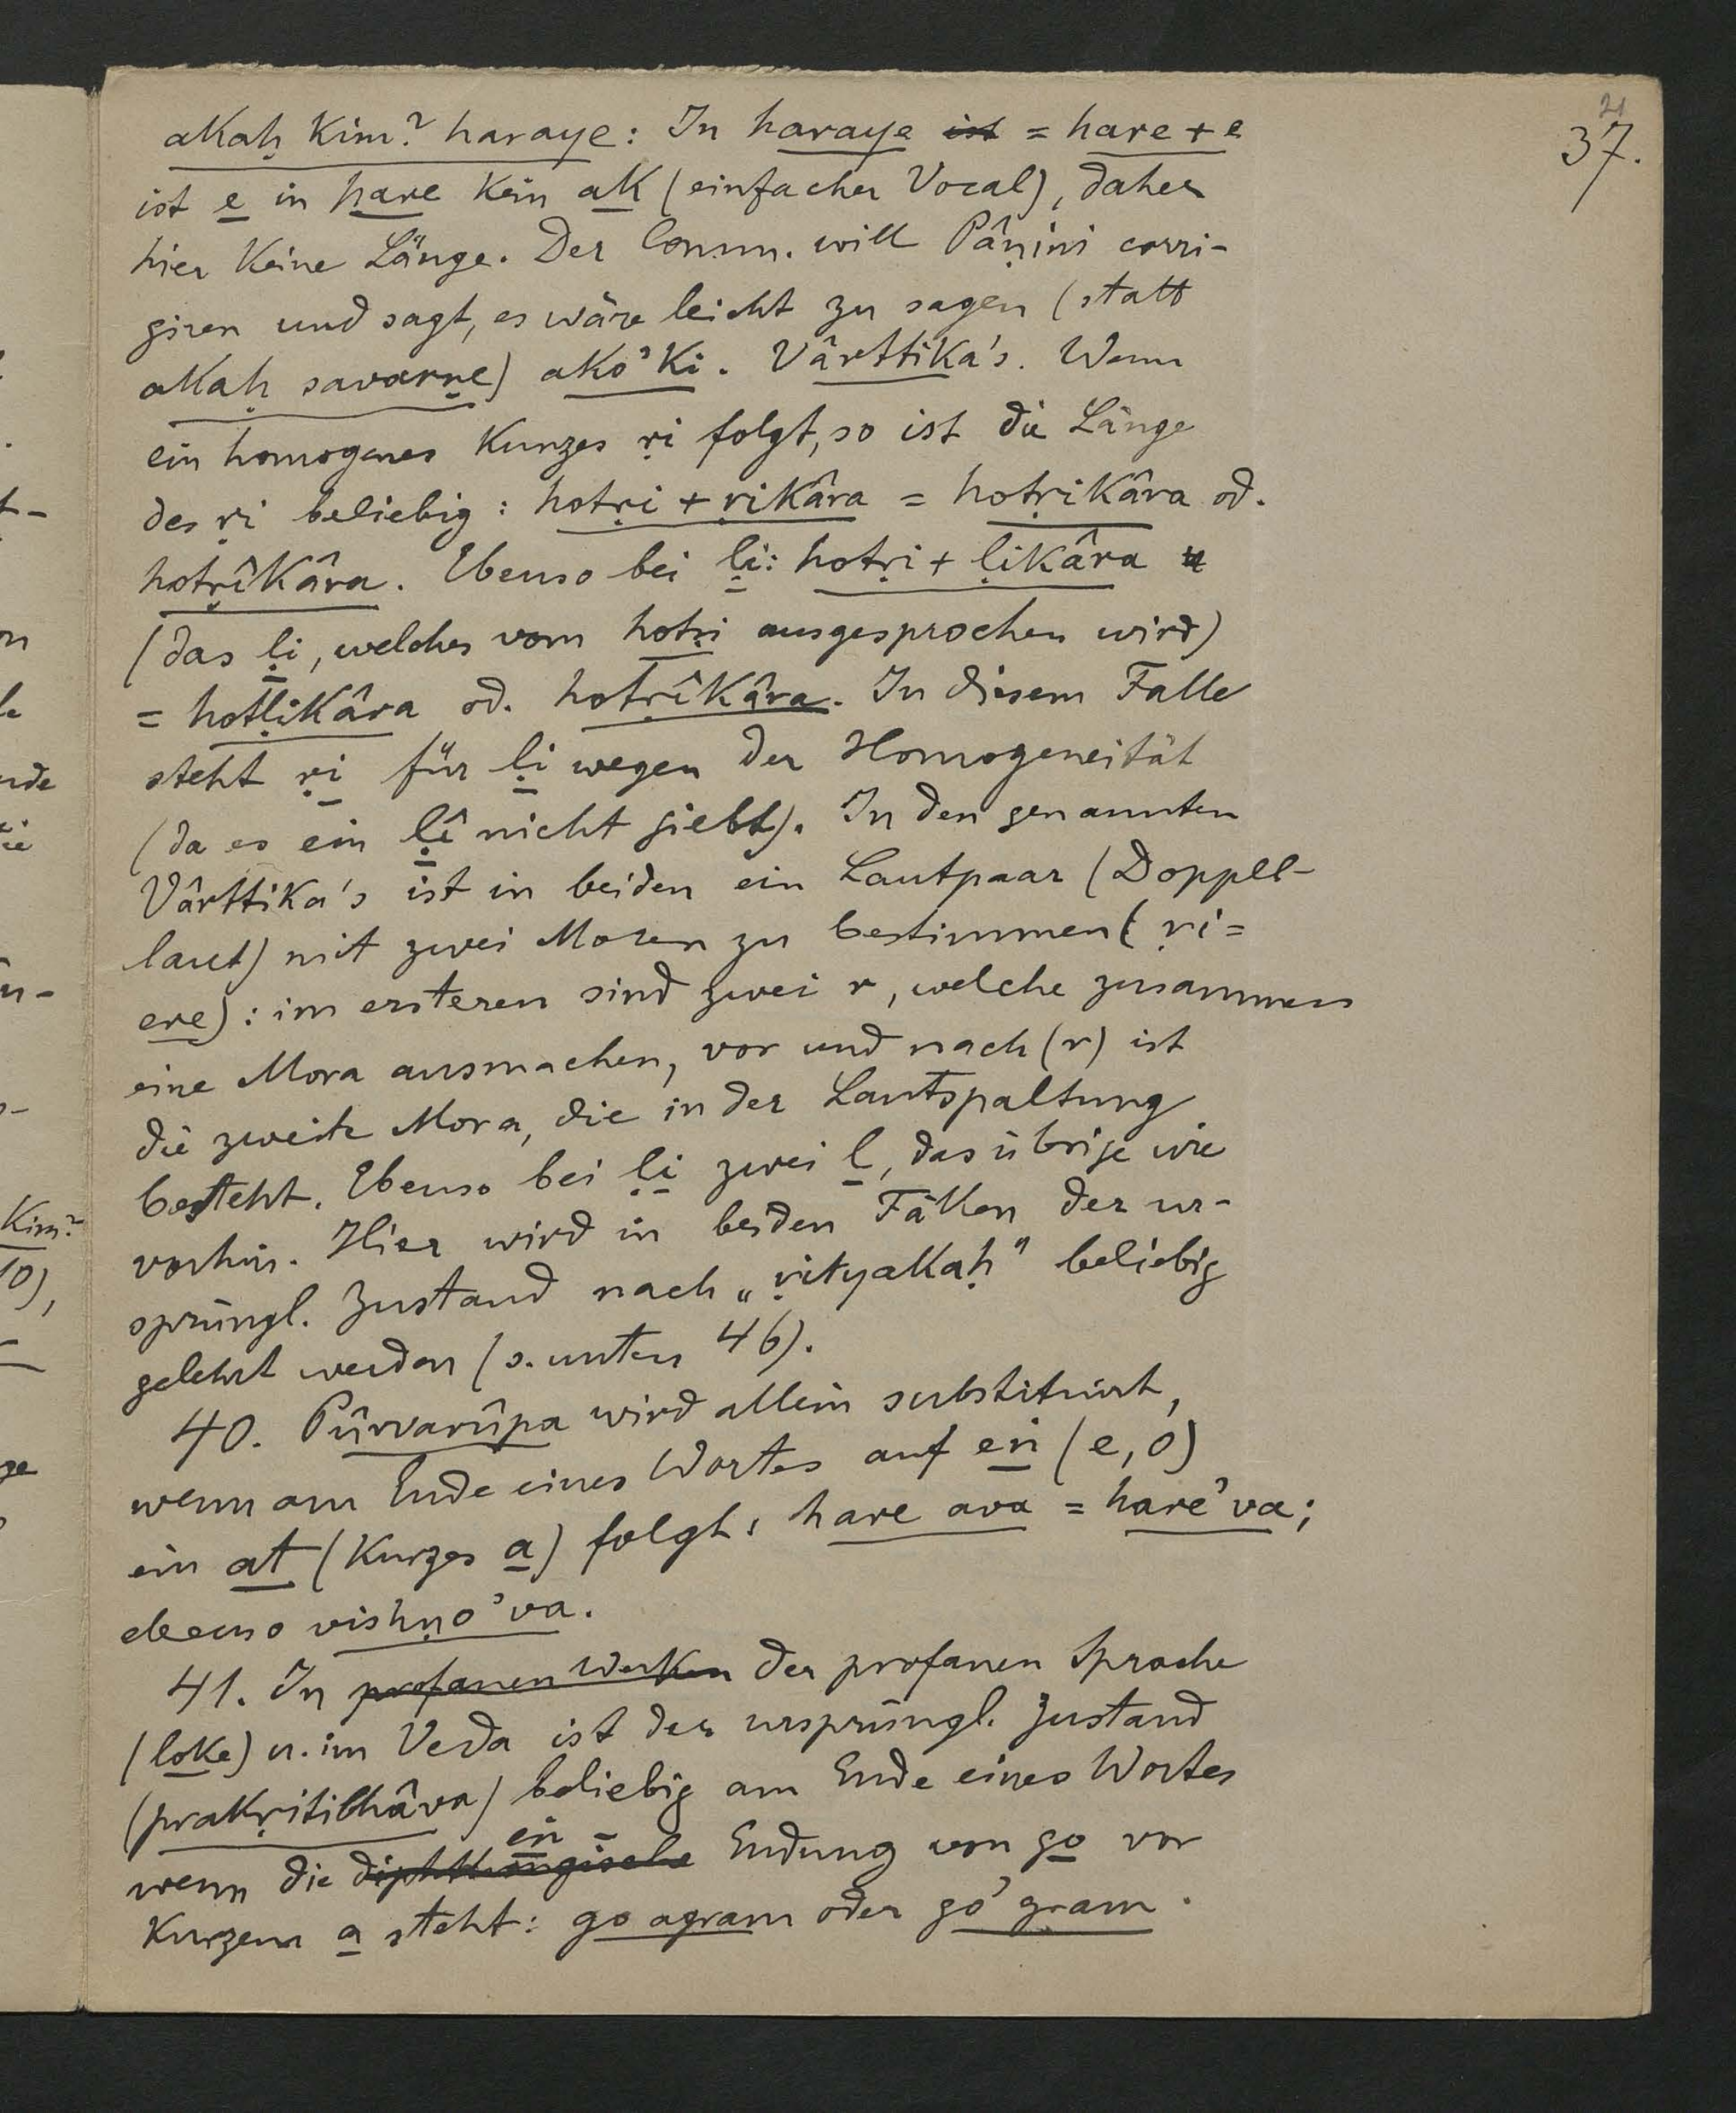 21
37.
akaḥ kim? haraye: In haraye ist = hare + e
ist e in hare kein ak (einfacher Vocal), daher
hier keine Länge. Der Comm. will Pâṇini corri-
giren und sagt, es wäre leicht zu sagen (statt
akaḥ savarṇe) ako'ki. Vârttika's. Wenn
ein homogenes kurzes ṛi folgt, so ist die Länge
des ṛi beliebig: hotṛi + ṛikâra = hotṛikâra od.
hotṛîkâra. Ebenso bei ḷi: hotṛi + ḷikâra
(das ḷi, welches vom hotṛi ausgesprochen wird)
= hotḷikâra od. hotṛîkâra. In diesem Falle
steht ṛi für ḷi wegen der Homogeneität
(da es ein ḷî nicht giebt). In den genannten
Vârttika's ist in beiden ein Lautpaar (Doppel-
laut) mit zwei Moren zu bestimmen (ṛi =
ere): im ersteren sind zwei r, welche zusammen
eine Mora ausmachen, vor und nach (r) ist
die zweite Mora, die in der Lautspaltung
besteht. Ebenso bei ḷi zwei l, das übrige wie
vorhin. Hier wird in beiden Fällen der ur-
sprüngl. Zustand nach „ṛityakaḥ" beliebig
gelehrt werden (s. unten 46).
40. Pûrvarûpa wird allein substituirt,
wenn am Ende eines Wortes auf eṅ (e, o)
ein at (kurzes a) folgt: hare ava = hare'va;
ebenso vishṇo'va.
41. In profanen Werken der profanen Sprache
(loke) u. im Veda ist der ursprüngl. Zustand
(prakṛitibhâva) beliebig am Ende eines Wortes
eṅ -
wenn die diphthongische Endung von go vor
kurzem a steht: go agram oder go'gram.
Kim?
10),